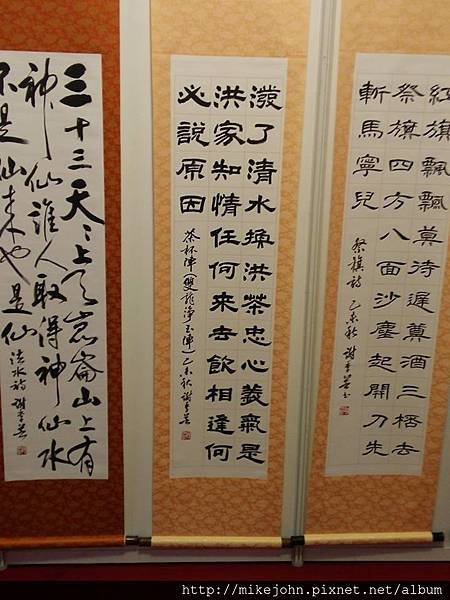 紅旗飄飄莫待遲奠酒三桮去
祭旗四方八面沙塵起開刀先
斬馬寧兒
祭旗詩 乙未秋
潑了清水換洪茶忠心義氣是
洪家知情任何來去飲相逢何
必說原因
茶杯陣(雙龍淨玉陣)乙未秋
三十三天〻上天崑崙山上有
神仙誰人取得神仙水
不是仙来也是仙 法水詩
http://mikejohn.pixnet.net/album